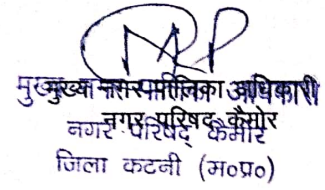 मुख्य नगर पालिका अधिकारी
नगर परिषद कैमोर
नगर परिषद् कैमोर
जिला कटनी (म०प्र०)